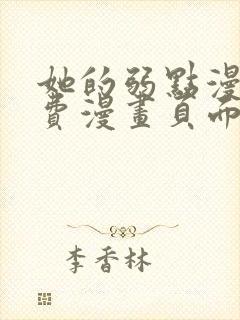 她的弱點漫
費漫畫頁而
李香林